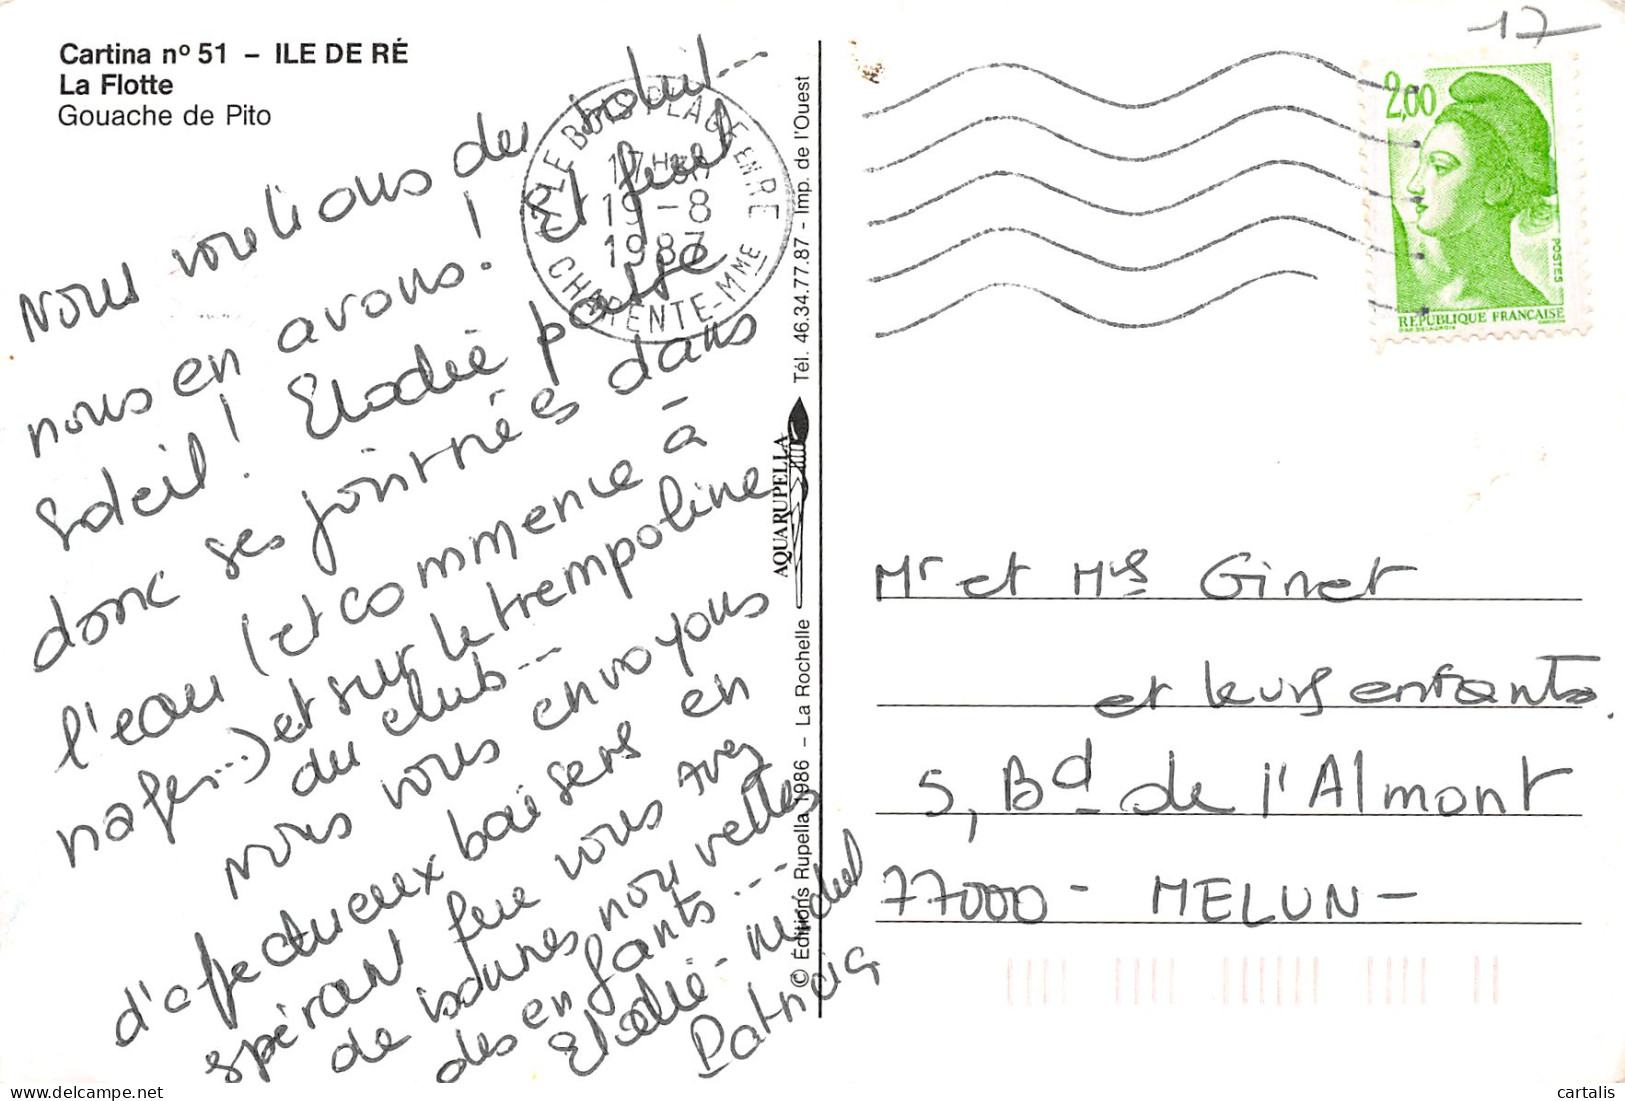 Cartina nº 51 – ILE DE RÉ
La Flotte
Gouache de Pito
Nous voulions du soleil...
nous en avons! Et quel
soleil! Elodie passe
donc ses journées dans
l'eau (et commence à
nager...) et sur le trempoline
du club...
Nous vous envoyons
d'affectueux baisers en
espérant que vous avez
de bonnes nouvelles
des enfants...
Elodie - Michel
Patricia
© Éditions Rupella 1986 – La Rochelle
AQUARUPELLA
Tél. 46.34.77.87 - Imp. de l'Ouest
LE BOIS PLAGE EN RE
17H
19-8
1987
CHARENTE-MME
17
2,00
POSTES
REPUBLIQUE FRANÇAISE
Mr et Mrs Ginet
et leurs enfants.
5, Bd de l'Almont
77000 - MELUN -
cartalis